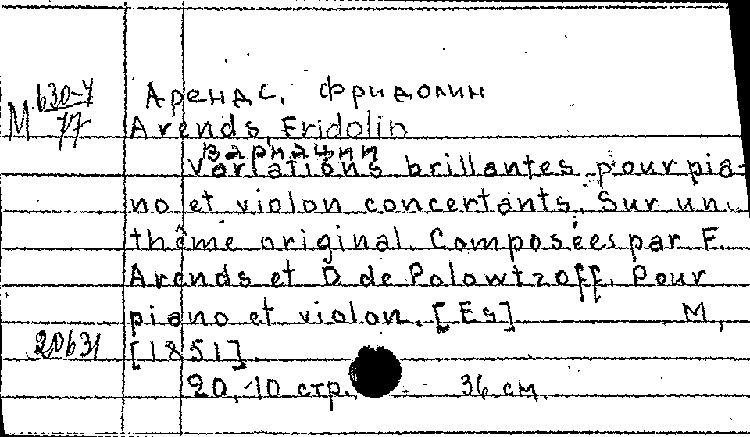 М 630-У/77
Арендс, Фридолин
Arends, Fridolin
Вариации
Variations brillantes pour pia-
no et violon concertants. Sur un
thême original. Composées par F.
Arends et D de Polowtzoff. Pour
piano et violon. [Es] М.,
20631 [1851].
20, 10 стр. 36 см.